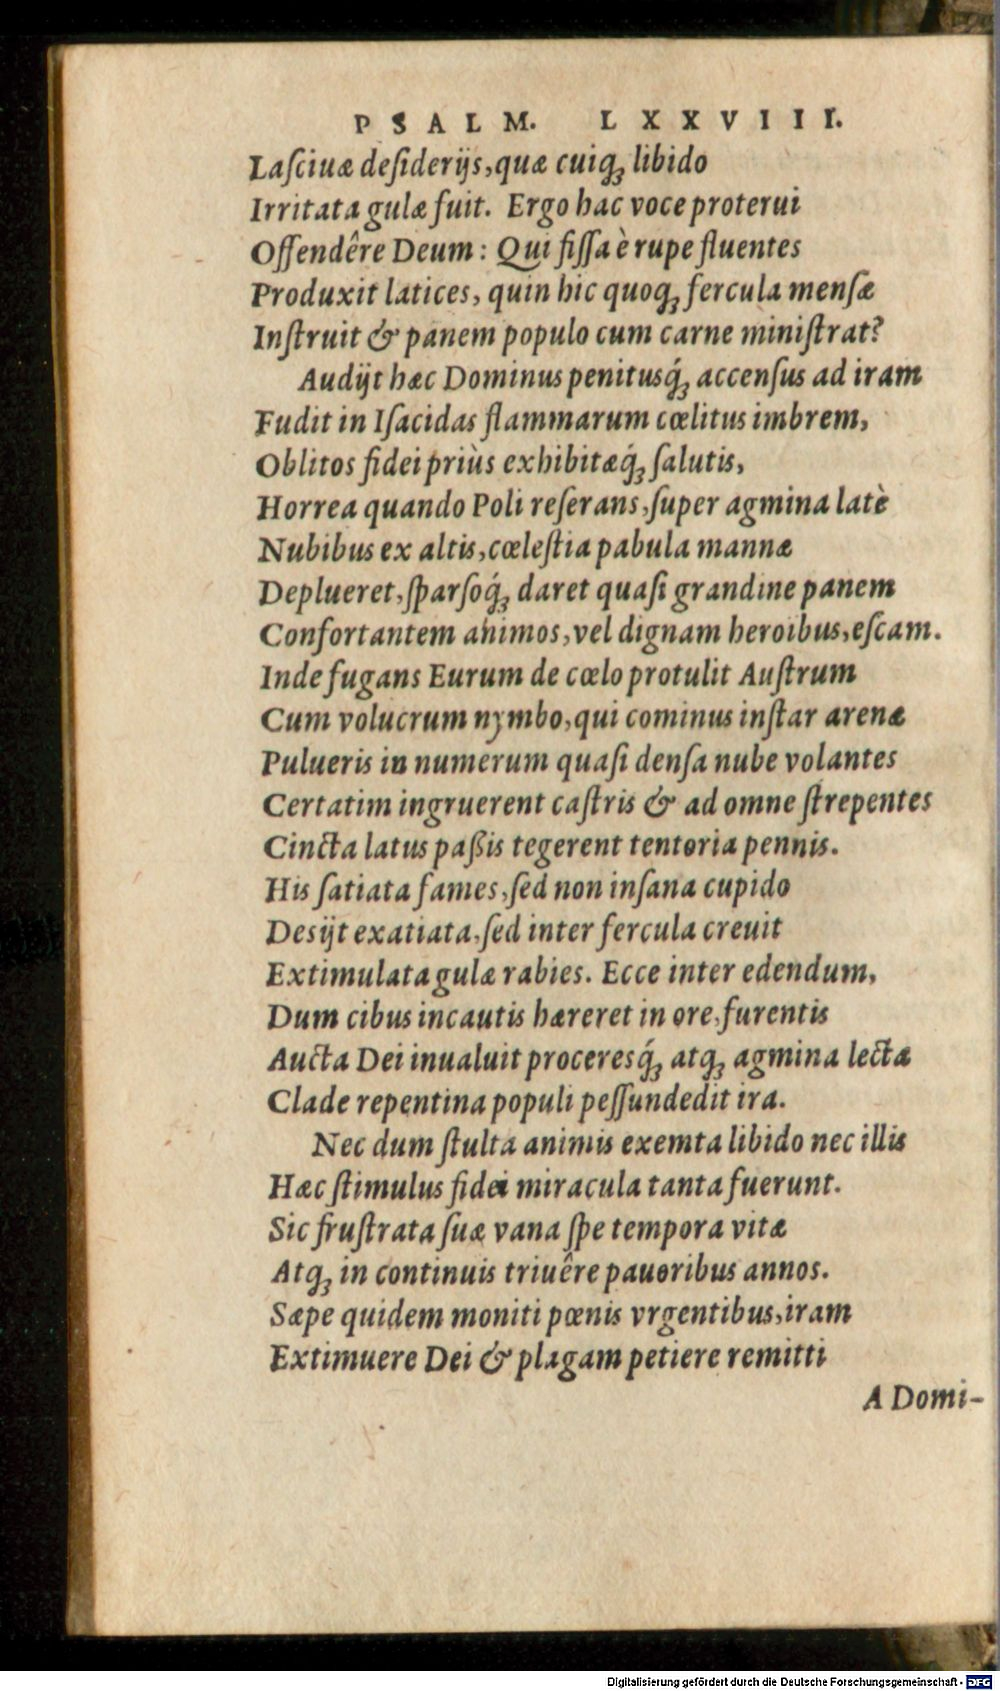 PSALM. LXXVIII.
Laſciuæ deſiderijs, quæ cuiqꝫ libido
Irritata gulæ fuit. Ergo hac voce proterui
Offendêre Deum: Qui fiſſa è rupe fluentes
Produxit latices, quin hic quoqꝫ fercula menſæ
Inſtruit & panem populo cum carne miniſtrat?
Audijt hæc Dominus penitusq́ꝫ accenſus ad iram
Fudit in Iſacidas flammarum cœlitus imbrem,
Oblitos fidei priùs exhibitæq́ꝫ ſalutis,
Horrea quando Poli reſerans, ſuper agmina latè
Nubibus ex altis, cœleſtia pabula mannæ
Deplueret, ſparſoq́ꝫ daret quaſi grandine panem
Confortantem animos, vel dignam heroibus, eſcam.
Inde fugans Eurum de cœlo protulit Auſtrum
Cum volucrum nymbo, qui cominus inſtar arenæ
Pulueris in numerum quaſi denſa nube volantes
Certatim ingruerent caſtris & ad omne ſtrepentes
Cincta latus paßis tegerent tentoria pennis.
His ſatiata fames, ſed non inſana cupido
Desijt exatiata, ſed inter fercula creuit
Extimulata gulæ rabies. Ecce inter edendum,
Dum cibus incautis hæreret in ore, furentis
Aucta Dei inualuit proceresq́ꝫ atqꝫ agmina lectæ
Clade repentina populi peſſundedit ira.
Nec dum ſtulta animis exemta libido nec illis
Hæc ſtimulus fidei miracula tanta fuerunt.
Sic fruſtrata ſuæ vana ſpe tempora vitæ
Atqꝫ in continuis triuêre pauoribus annos.
Sæpe quidem moniti pœnis vrgentibus, iram
Extimuere Dei & plagam petiere remitti
A Domi-
Digitalisierung gefördert durch die Deutsche Forschungsgemeinschaft - DFG